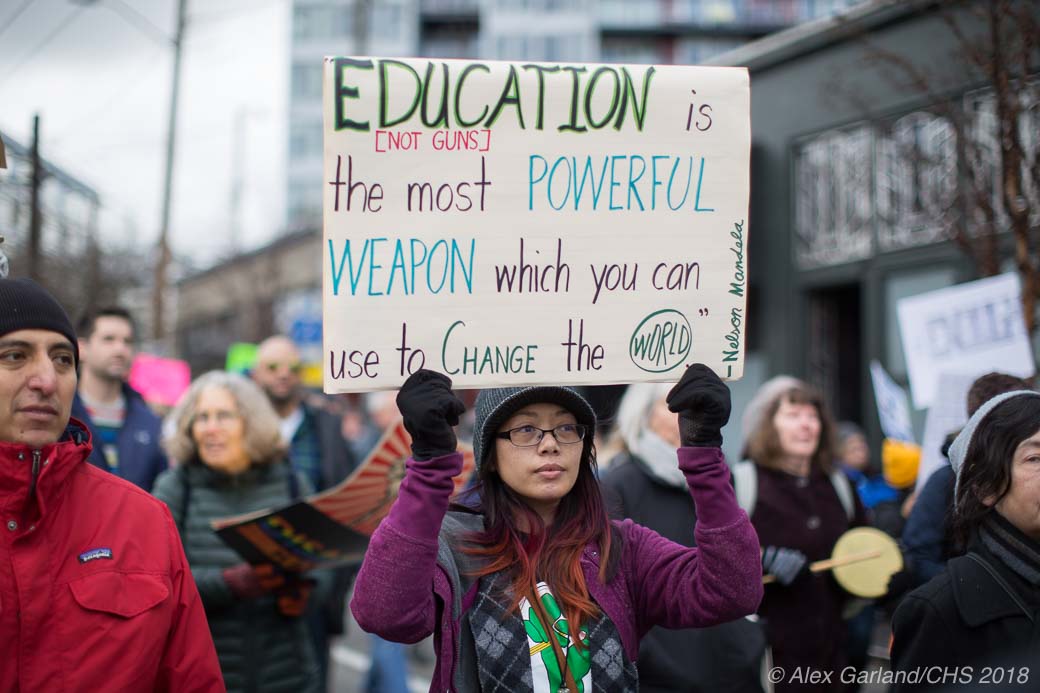 EDUCATION is
[NOT GUNS]
the most POWERFUL
WEAPON which you can
use to CHANGE the WORLD"
- Nelson Mandela
patagonia
© Alex Garland/CHS 2018